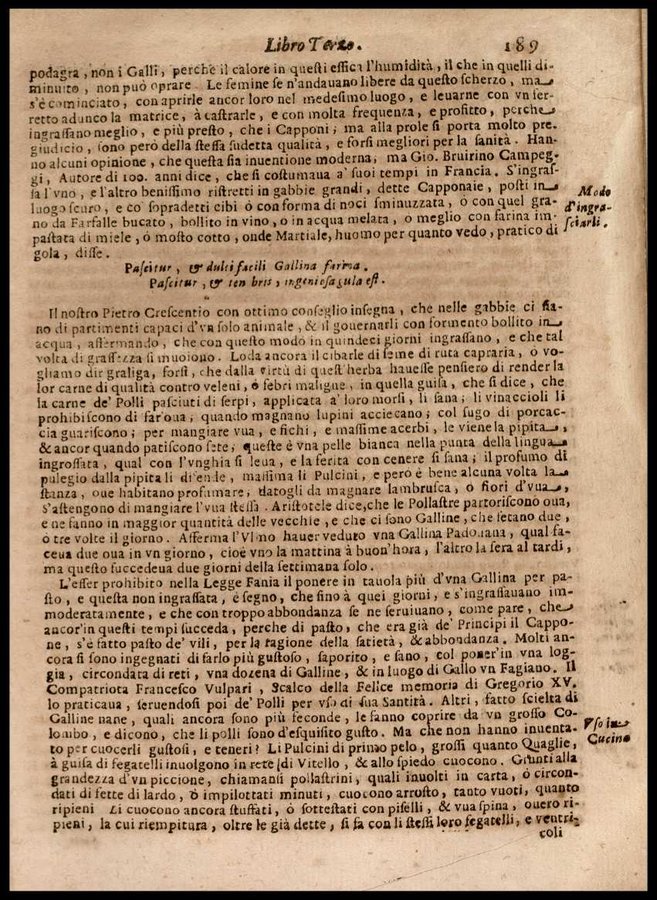 Libro Terzo. 189
podagra, non i Galli, perche il calore in questi essica l'humidità, il che in quelli di-
minuito, non può oprare. Le femine se n'andauano libere da questo scherzo, ma
s'è cominciato, con aprirle ancor loro nel medesimo luogo, e leuarne con vn fer-
retto adunco la matrice, à castrarle, e con molta frequenza, e profitto, perche
ingrassano meglio, e più presto, che i Capponi; ma alla prole si porta molto pre-
giudicio, sono però della stessa sudetta qualità, e forsi megliori per la sanità. Han-
no alcuni opinione, che questa sia inuentione moderna, ma Gio. Bruirino Campeg-
gi, Autore di 100. anni dice, che si costumaua a' suoi tempi in Francia. S'ingras-
sa l'vno, e l'altro benissimo ristretti in gabbie grandi, dette Capponaie, posti in
luogo scuro, e co' sopradetti cibi ò con forma di noci sminuzzata, ò con quel gra-
no da Farfalle bucato, bollito in vino, o in acqua melata, o meglio con farina im-
pastata di miele, ò mosto cotto, onde Martiale, huomo per quanto vedo, pratico di
gola, disse.
Modo
d'ingra-
sciarli.
Pascitur, & dulci facili Gallina farina.
Pascitur, & ten bris, ingeniosa gula est.
Il nostro Pietro Crescentio con ottimo conseglio insegna, che nelle gabbie ci sia-
no di partimenti capaci d'vn solo animale, & il governarli con formento bollito in
acqua, affermando, che con questo modo in quindeci giorni ingrassano, e che tal
volta di grassezza si muoiono. Loda ancora il cibarle di seme di ruta capraria, ò vo-
gliamo dir graliga, forsi, che dalla virtù di quest'herba hauesse pensiero di render la
lor carne di qualità contro veleni, ò febri maligne, in quella guisa, che si dice, che
la carne de' Polli pasciuti di serpi, applicata a' loro morsi, li sana; li vinaccioli li
prohibiscono di far'oua, quando magnano lupini acciecano; col sugo di porcac-
cia guariscono; per mangiare vua, e fichi, e massime acerbi, le viene la pipita,
& ancor quando patiscono sete; queste è vna pelle bianca nella punta della lingua
ingrossata, qual con l'vnghia si leua, e la ferita con cenere si sana; il profumo di
pulegio dalla pipita li difende, massima li Pulcini, e però è bene alcuna volta la
stanza, oue habitano profumare, datogli da magnare lambrusca, ò fiori d'vua,
s'astengono di mangiare l'vua stessa. Aristotele dice, che le Pollastre partoriscono oua,
e ne fanno in maggior quantità delle vecchie, e che ci sono Galline, che fetano due,
ò tre volte il giorno. Afferma l'Vlmo hauer veduto vna Gallina Padouana, qual fa-
ceua due oua in vn giorno, cioè vno la mattina à buon'hora, l'altro la sera al tardi,
ma questo succedeua due giorni della settimana solo.
L'esser prohibito nella Legge Fania il ponere in tauola più d'vna Gallina per pa-
sto, e questa non ingrassata, è segno, che fino à quei giorni, e s'ingrassauano im-
moderatamente, e che con troppo abbondanza se ne seruiuano, come pare, che
ancor'in questi tempi succeda, perche di pasto, che era già de' Principi il Cappo-
ne, s'è fatto pasto de' vili, per la ragione della satietà, & abbondanza. Molti an-
cora si sono ingegnati di farlo più gustoso, saporito, e sano, col poner'in vna log-
gia, circondata di reti, vna dozena di Galline, & in luogo di Gallo vn Fagiano. Il
Compatriota Francesco Vulpari, Scalco della Felice memoria di Gregorio XV.
lo praticaua, seruendosi poi de' Polli per vso di sua Santità. Altri, fatto scielta di
Galline nane, quali ancora sono più feconde, le fanno coprire da vn grosso Co-
lombo, e dicono, che li polli sono d'esquisito gusto. Ma che non hanno inuenta-
to per cuocerli gustosi, e teneri? Li Pulcini di primo pelo, grossi quanto Quaglie,
à guisa di fegatelli inuolgono in rete di Vitello, & allo spiedo cuocono. Giunti alla
grandezza d'vn piccione, chiamansi pollastrini, quali inuolti in carta, ò circon-
dati di fette di lardo, ò impilottati minuti, cuocono arrosto, tanto vuoti, quanto
ripieni Li cuocono ancora stuffati, ò sottestati con piselli, & vua spina, ouero ri-
pieni, la cui riempitura, oltre le già dette, si fa con li stessi loro fegatelli, e ventri-
coli
Vso in
Cucina